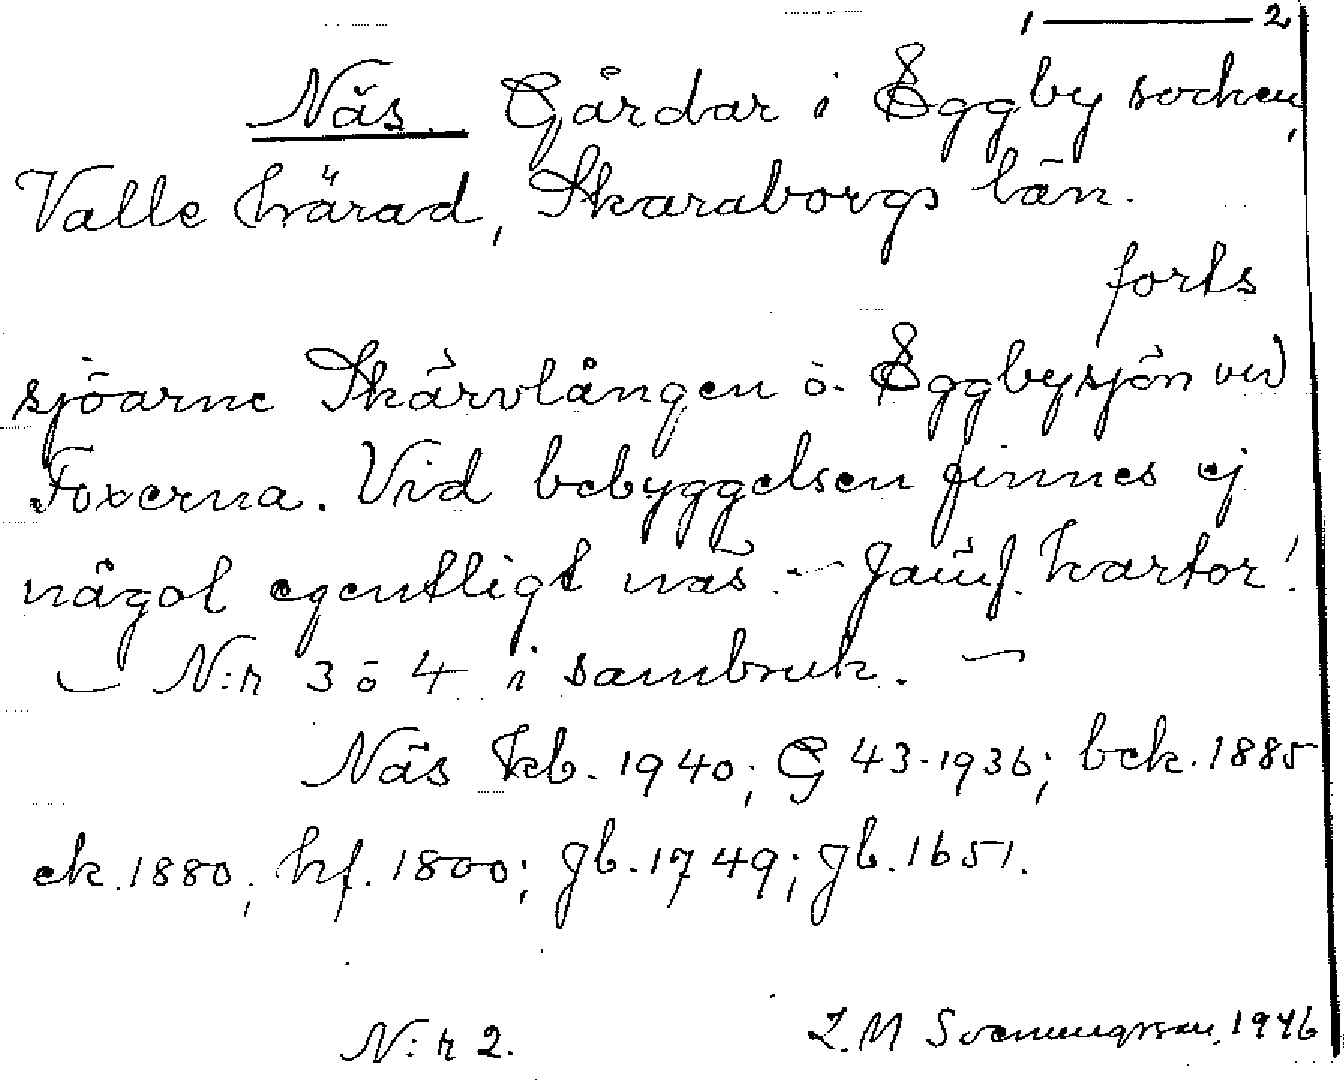 1 — 2
Näs. Gårdar i Eggby socken,
Valle härad, Skaraborgs län.
forts
sjöarne Skärvlången o. Eggbysjön vid
Toxerna. Vid bebyggelsen finnes ej
något egentligt näs. — Jämf. kartor!
— N:r 3 o 4 i sambruk. —
Näs kb. 1940; G 43-1936; bek. 1885
ek. 1880; hf. 1800; jb. 1749; jb. 1651.
N:r 2.
L. M Svenungsson, 1946